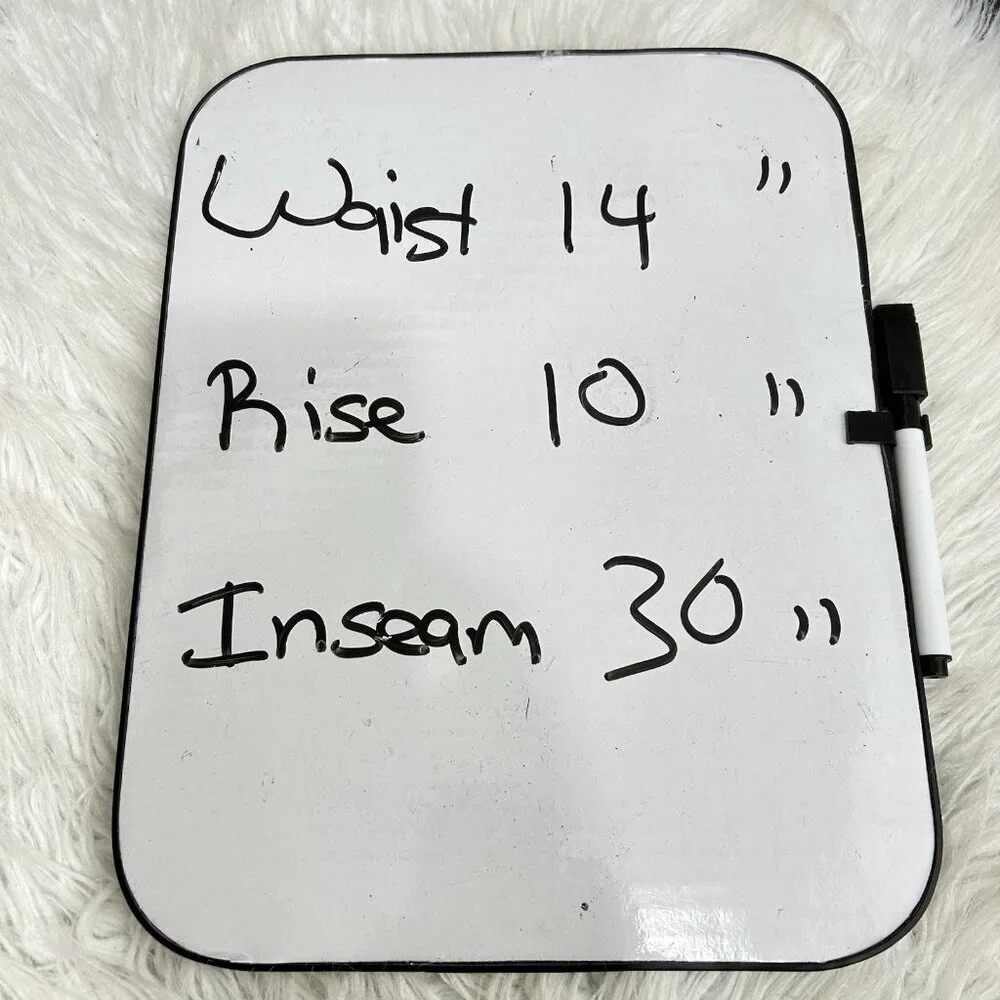 Waist 14 "
Rise 10 "
Inseam 30 "